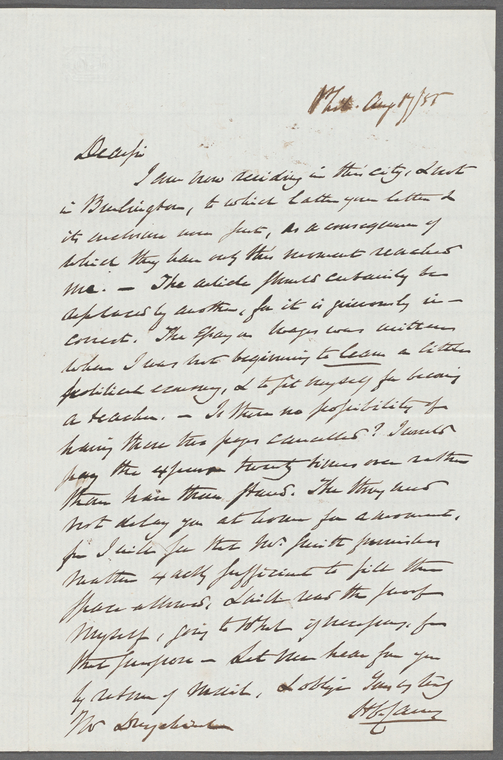 Phil. Aug 17/55
Dear Sir
I am now residing in this city, & not
in Burlington, to which latter your letter &
its enclosure were sent, as a consequence of
which they have only this moment reached
me. — The article should certainly be
replaced by another, for it is grievously in-
correct. The Essay on Wages was written
when I was but beginning to learn a little
political economy, & to fit myself for becoming
a teacher. — Is there no possibility of
having these two pages cancelled? I would
pay the expense twenty times over rather
than have them stand. The thing need
not delay you at home for a moment,
for I will see that Mr. Smith furnishes
matter exactly sufficient to fill the
space allowed, & will read the proof
myself, going to if necessary, for
that purpose — Let me hear from you
by return of mail, & oblige Yours truly
H C Carey
Mr Duyckinck